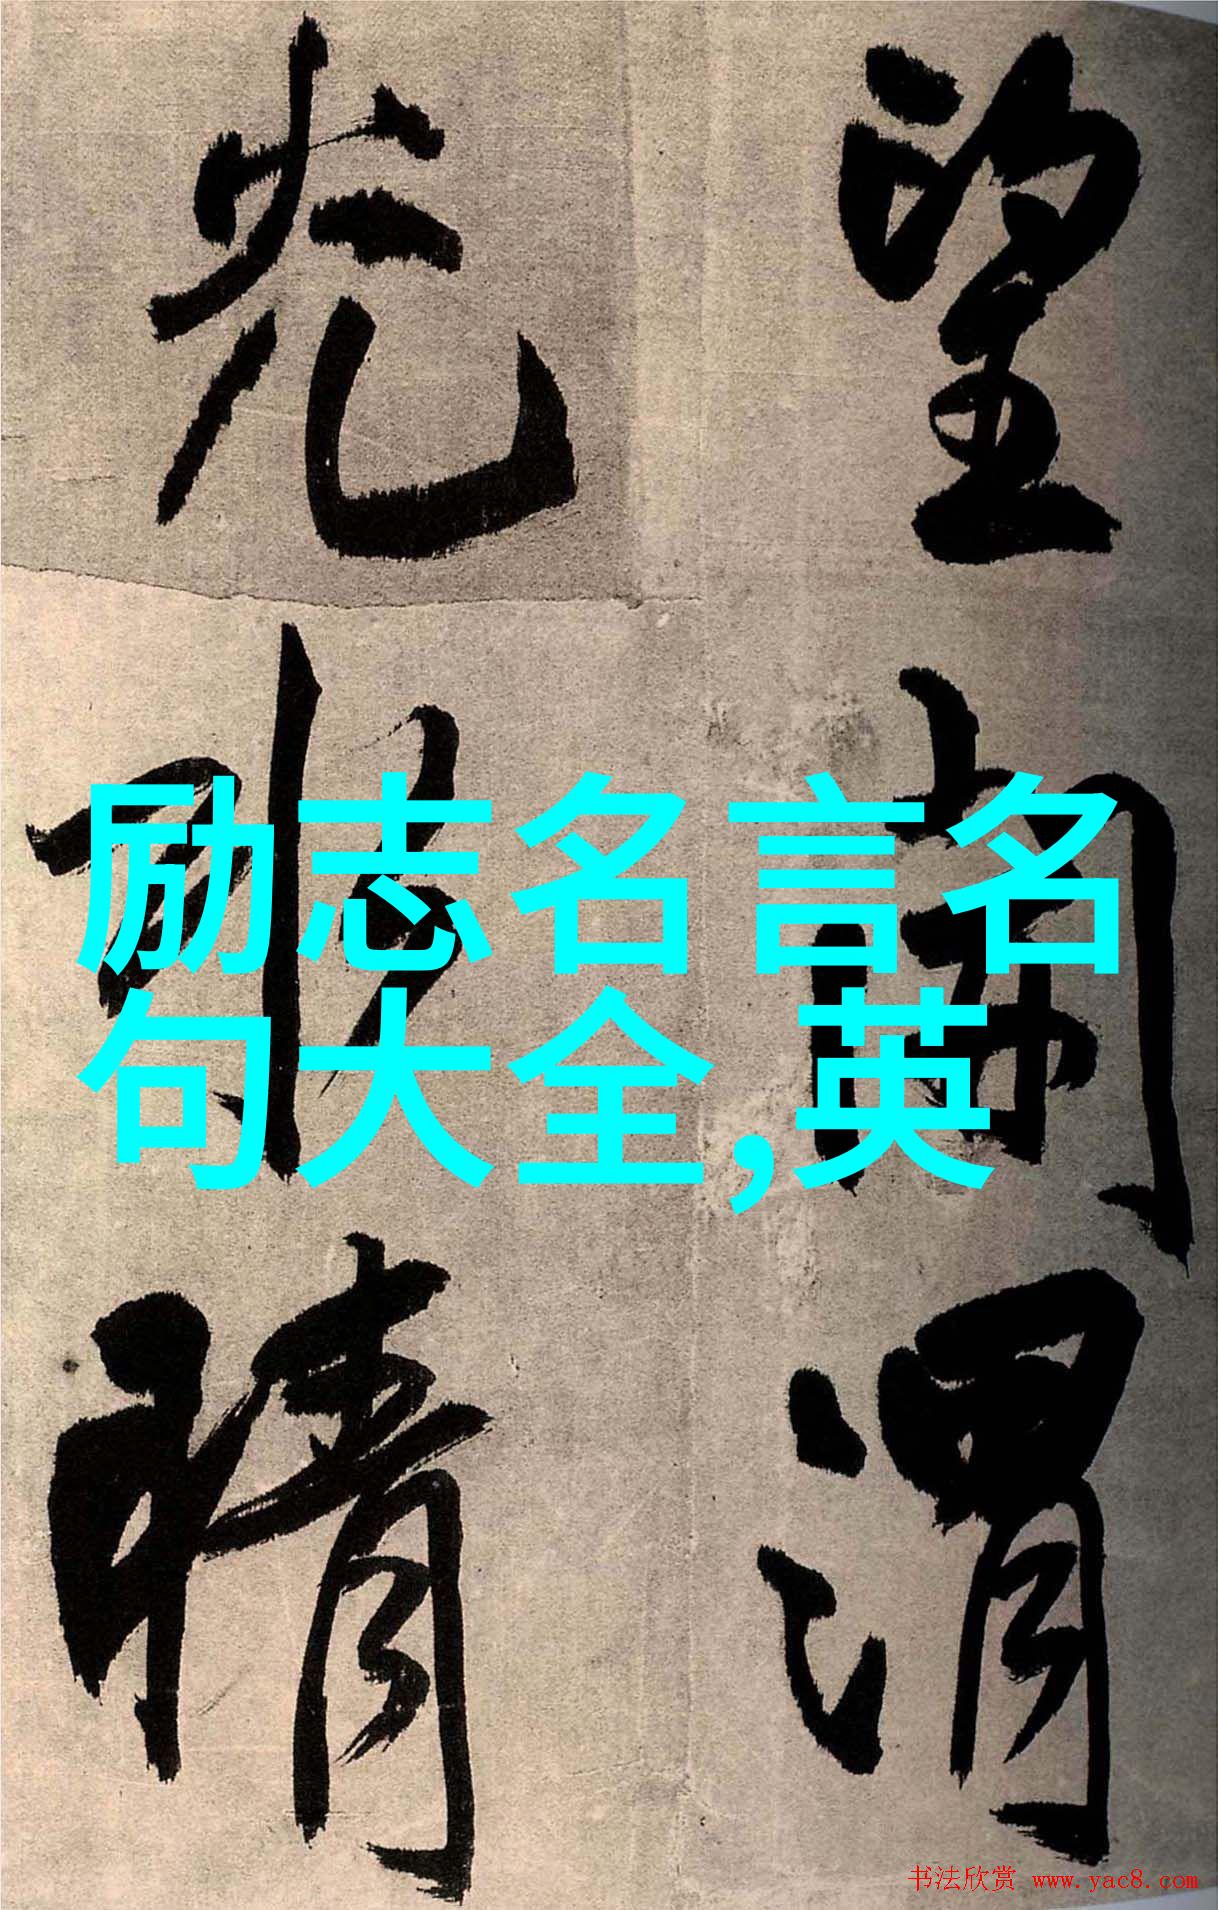 望
渭
光
晴
励志名言名
句大全,英
书法欣赏 www.yac8.com